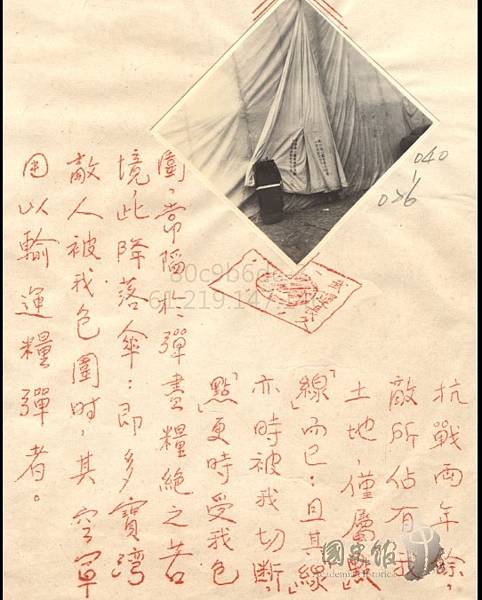 抗戰兩年餘，
敵所佔有我
土地，僅屬「點」
「線」而已：且其「線」
亦時被我切斷，
「點」更時受我包
圍，常陷於彈盡糧絕之苦
境，此降落傘：即多寶灣
敵人被我包圍時，其空軍
用以輸運糧彈者。
040
國史館
Academia Historica